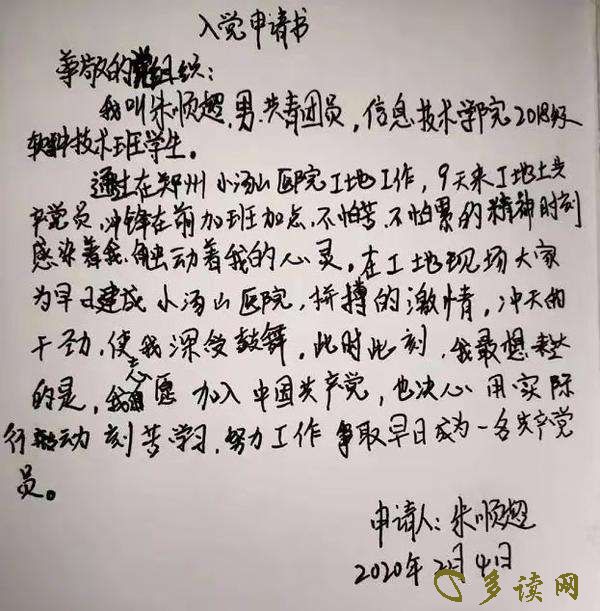 入党申请书
尊敬的党组织：
我叫朱顺超，男，共青团员，信息技术学院2018级
软件技术班学生。
通过在郑州小汤山医院工地工作，9天来工地上共
产党员，冲锋在前加班加点，不怕苦、不怕累的精神时刻
感染着我，触动着我的心灵。在工地现场大家
为早日建成小汤山医院，拼搏的激情，冲天的
干劲，使我深受鼓舞。此时此刻，我最想表达
的是，我志愿加入中国共产党，也决心用实际
行动刻苦学习，努力工作争取早日成为一名共产党
员。
申请人：朱顺超
2020年2月4日
多读网